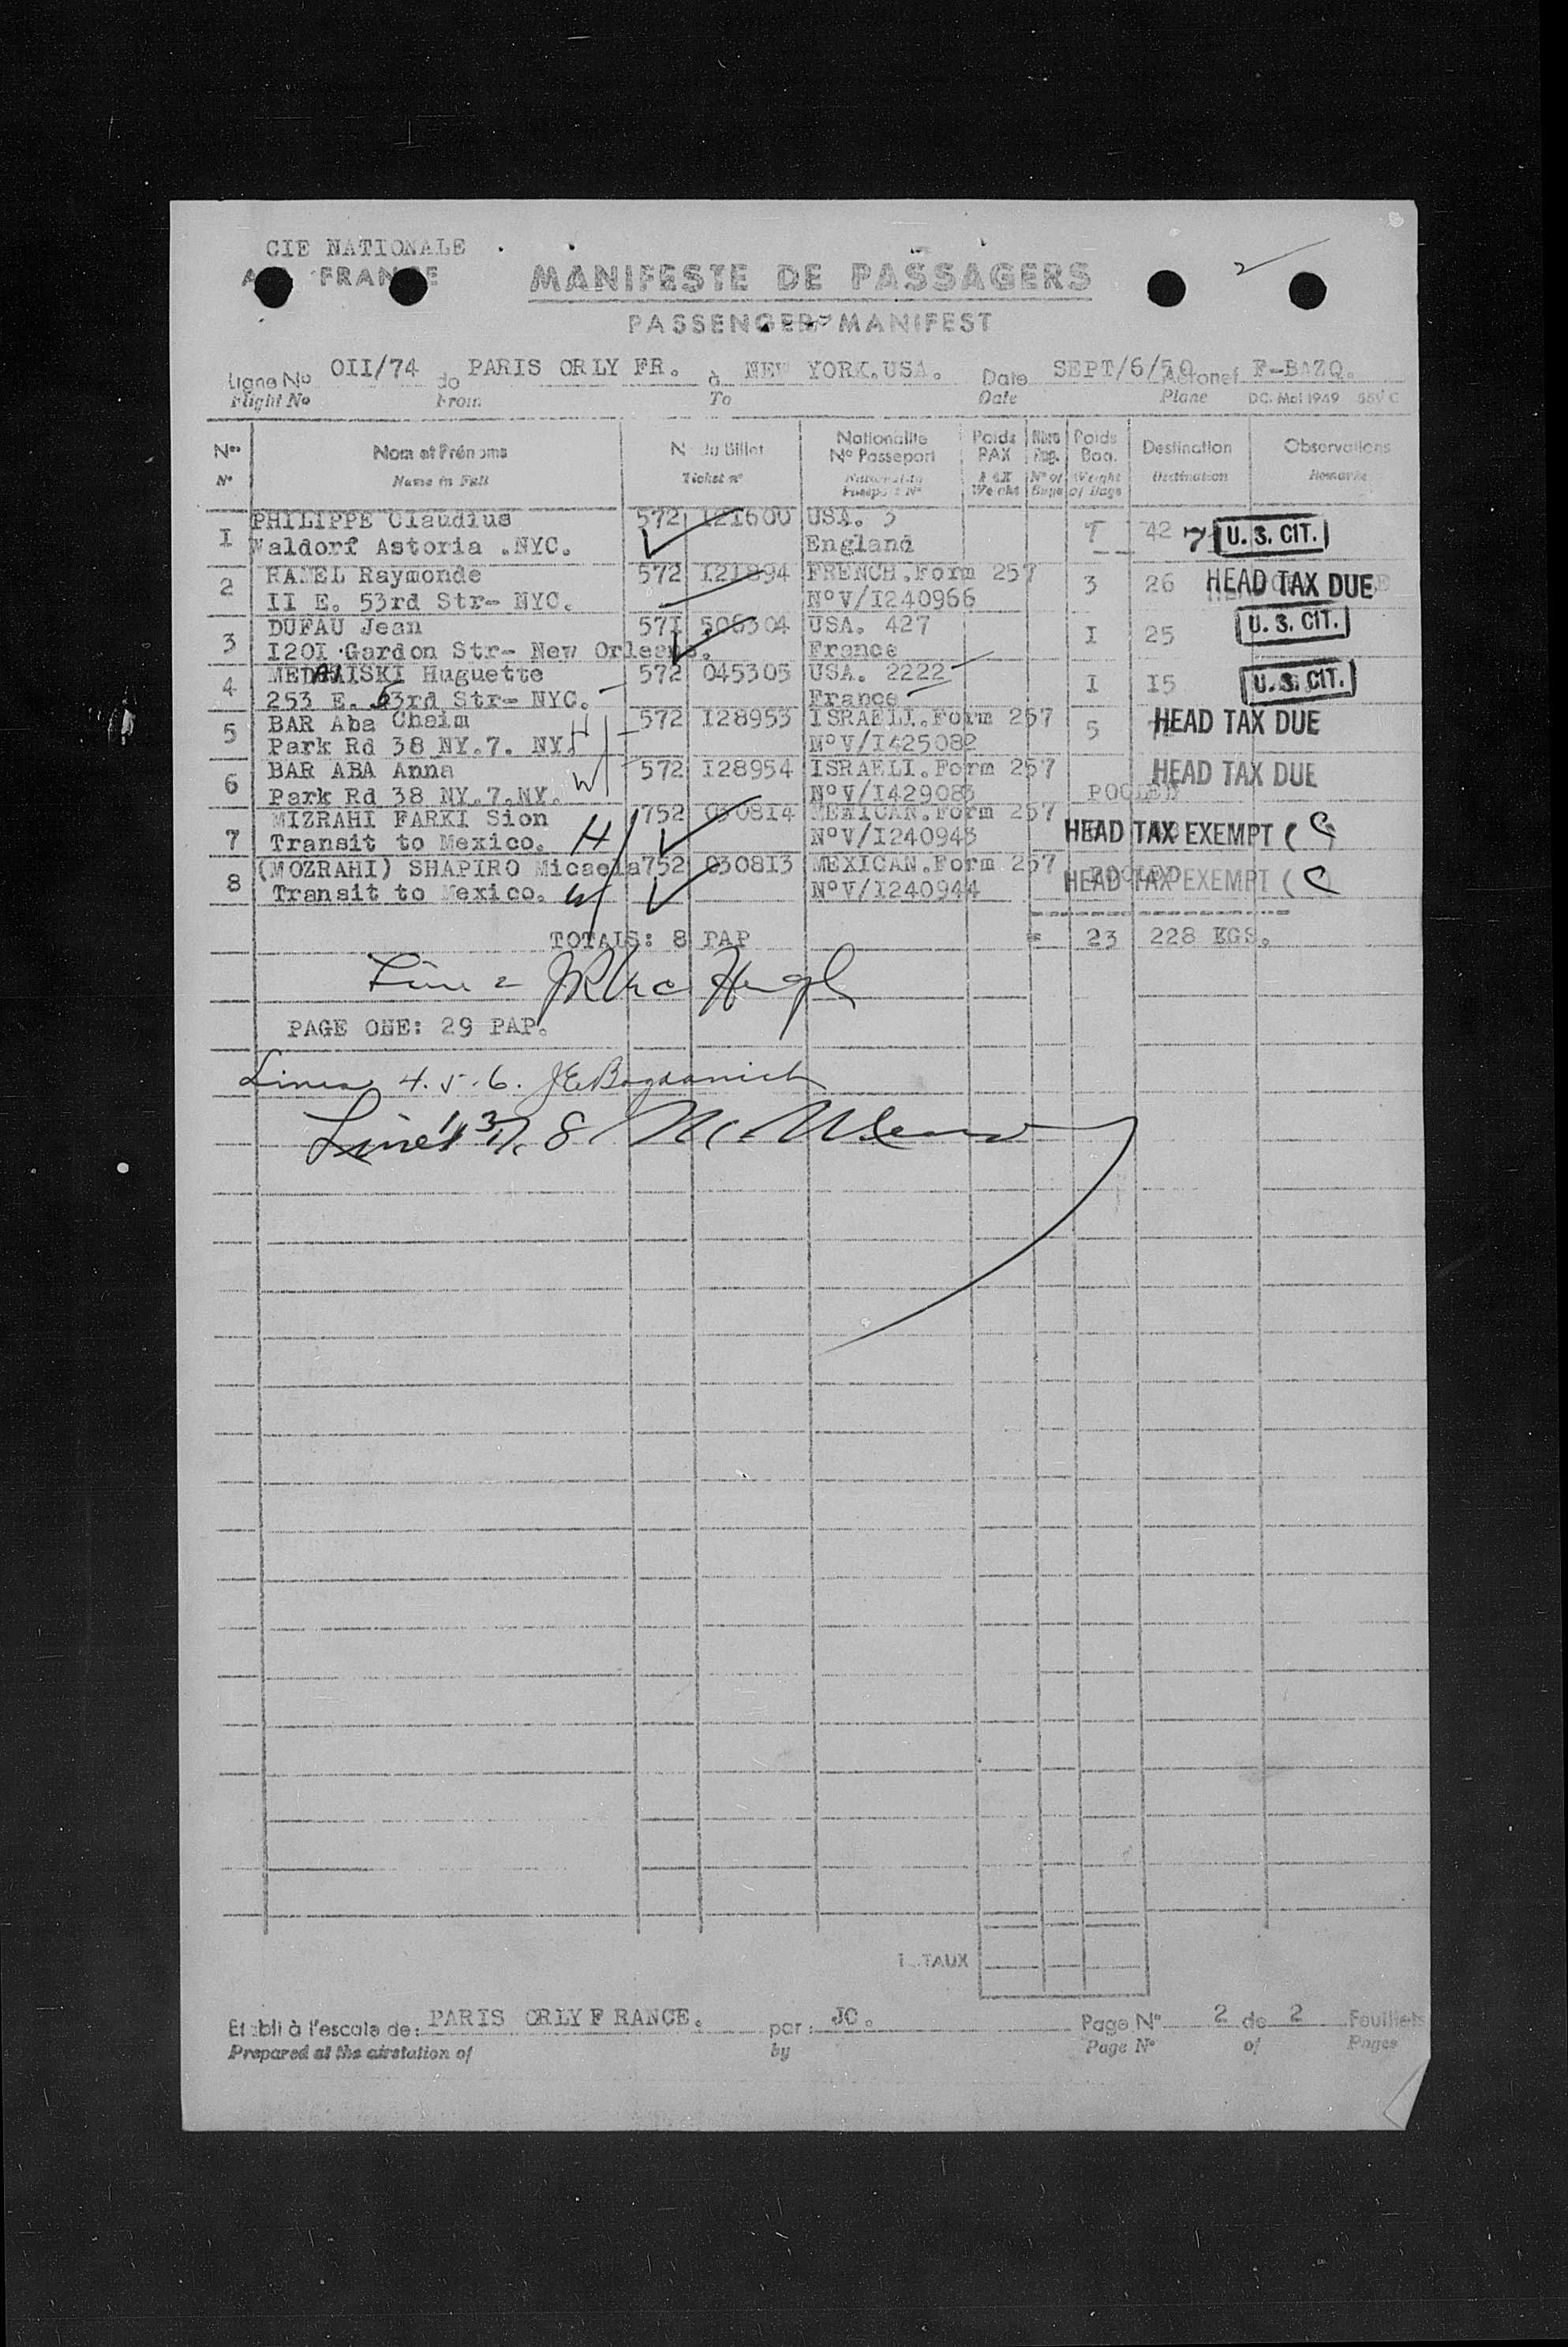 CIE NATIONALE
FRAN E
MANIFESTE DE PASSAGERS
PASSENGER MANIFEST
Ligne No OII/74 de PARIS ORLY FR. à NEW YORK.USA. Date SEPT/6/50 Aéronef F-BAZQ.
Flight No From To Date Plane DC. Mai 1949
Nos Nom et Prénoms N du Billet Nationalité Poids Poids Destination Observations
Nº Passeport PAX Bag.
N° Name in Full Ticket n° Nº of Weight Destination Remarks
Weight Bags of Bags
1 PHILIPPE Claudius 572 121600 USA. 3 42 7 U. S. CIT.
Waldorf Astoria .NYC. England
2 Raymonde 572 I21894 FRENCH.Form 257 3 26 HEAD TAX DUE
II E. 53rd Str- NYC. N°V/I240966
3 DUFAU Jean 57I 506304 USA. 427 I 25 U. S. CIT.
I20I Gardon Str- New Orleans. France
4 Huguette 572 045305 USA. 2222 I I5 U. S. CIT.
253 E. 63rd Str- NYC. France
5 BAR Aba Chaim 572 I28953 ISRAELI.Form 257 5 HEAD TAX DUE
Park Rd 38 NY.7. NY. H N°V/I425082
6 BAR ABA Anna 572 I28954 ISRAELI.Form 257 HEAD TAX DUE
Park Rd 38 NY.7.NY. W N°V/I429083 POOLED
7 MIZRAHI FARKI Sion 752 030814 MEXICAN.Form 257 HEAD TAX EXEMPT ( C )
Transit to Mexico. H N°V/I240943
8 (MOZRAHI) SHAPIRO Micaela 752 030813 MEXICAN.Form 257 POOLED HEAD TAX EXEMPT ( C )
Transit to Mexico. W N°V/I240944
TOTALS: 8 PAP = 23 228 KGS.
Line 2
PAGE ONE: 29 PAP.
Lines 4. 5. 6. J E Bogdanich
Lines 1, 3, 7, 8
TAUX
Etabli à l'escale de: PARIS ORLY FRANCE. par: JC. Page N° 2 de 2 Feuillets
Prepared at the airstation of by Page N° of Pages